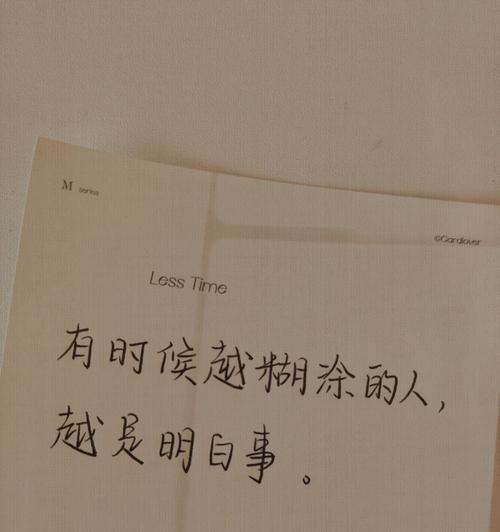 M series
©Cardlover
Less Time
有时候越糊涂的人,
越是明白事。